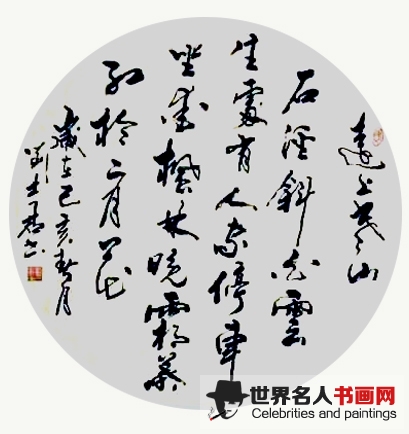 遠上寒山
石徑斜白雲
生處有人家停車
坐愛楓林晚霜葉
紅於二月花
歲在己亥春月
劉士书
世界名人书画网
Celebrities and paintings